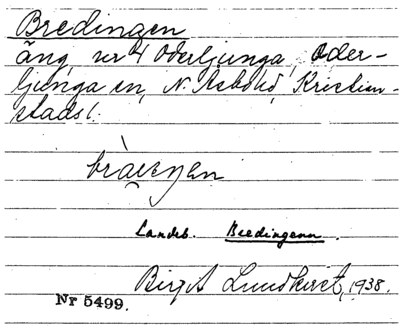 Bredingen
äng, nr 4 Oderljunga, Oder-
ljunga sn, N. Åsbo hd, Kristian-
stads l.
Landsb. Breedingenn.
Birgit Lundkvist, 1938.
Nr 5499.